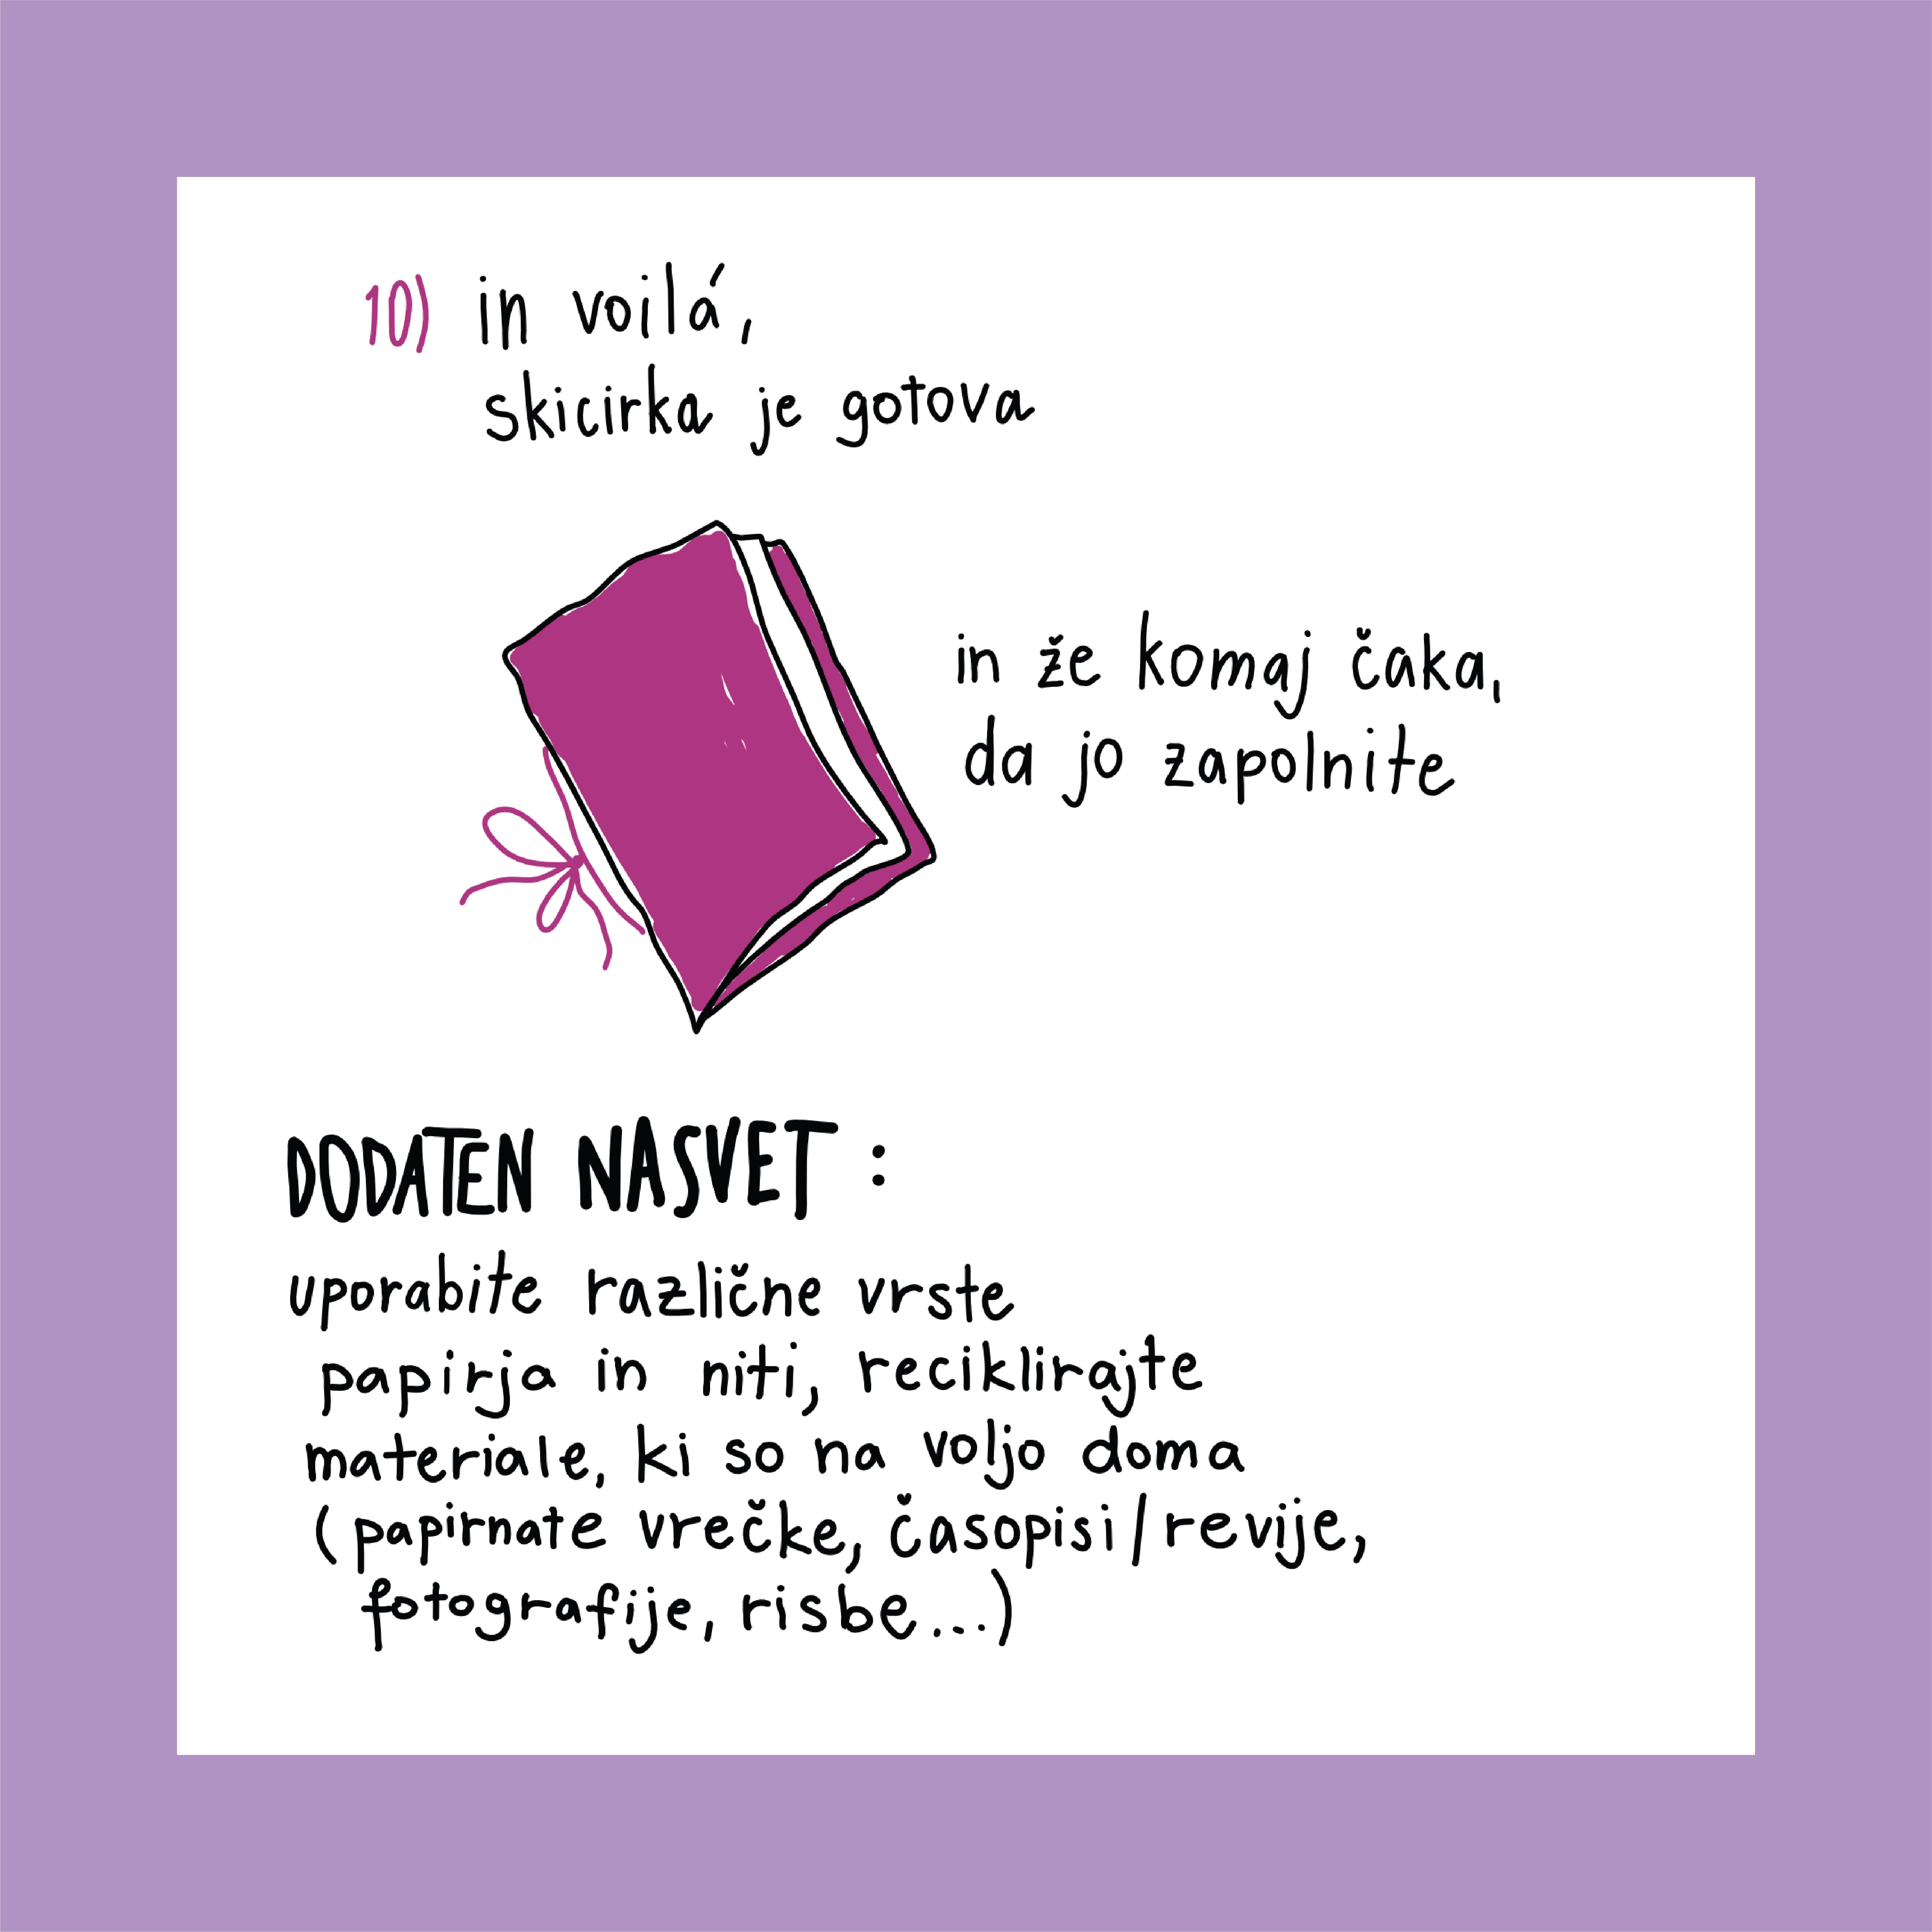 10) in voilá,
skicirka je gotova
in že komaj čaka,
da jo zapolnite
DODATEN NASVET:
uporabite različne vrste
papirja in niti, reciklirajte
materiale, ki so na voljo doma
(papirnate vrečke, časopisi/revije,
fotografije, risbe...)